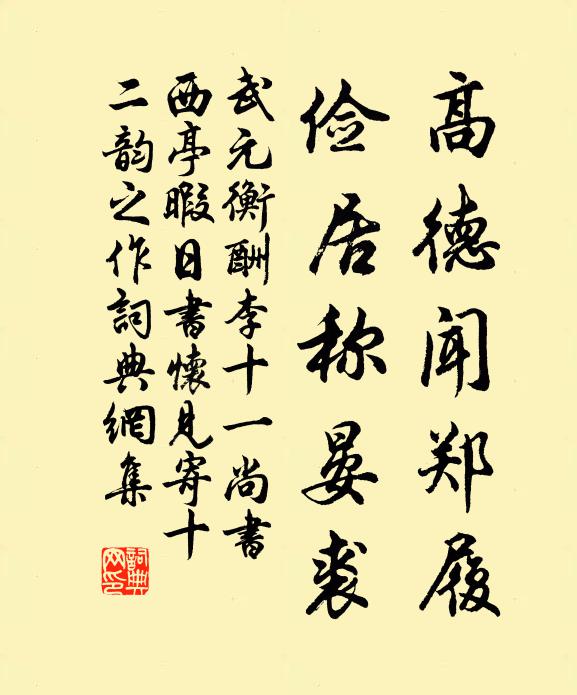 高德闻郑履
俭居称晏裘
武元衡酬李十一尚書
西亭暇日書懷見寄十
二韵之作詞典網集
詞典网印